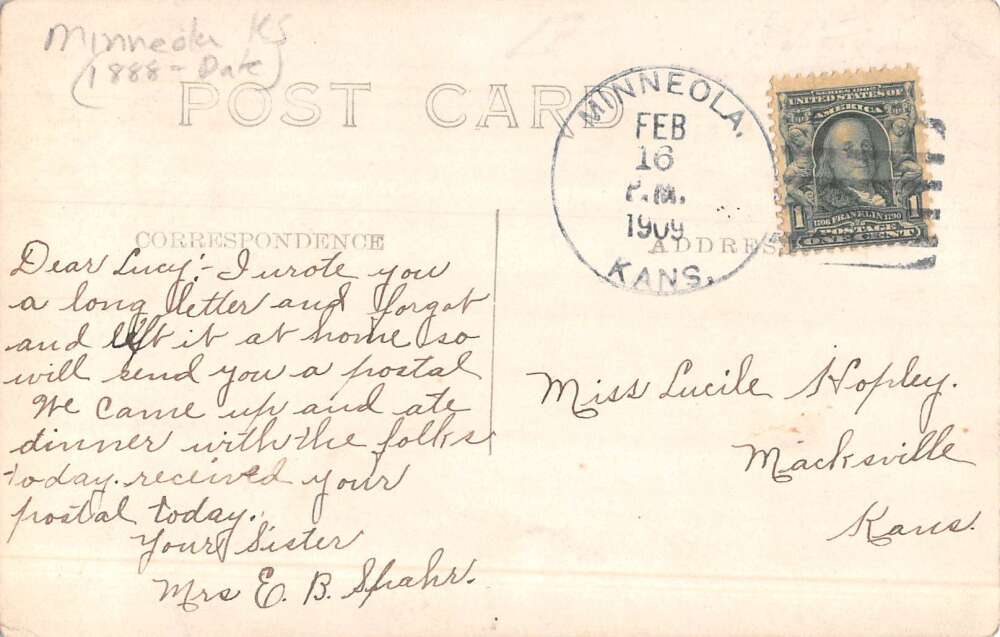 Minneola KS
(1888 - Date)
POST CARD
MINNEOLA,
FEB
16
P.M.
1909
KANS.
SERIES 1902
UNITED STATES OF
AMERICA
1 1706 FRANKLIN 1790 1
POSTAGE
ONE CENT
CORRESPONDENCE
ADDRESS
Dear Lucy:- I wrote you
a long letter and forgot
and left it at home so
will send you a postal
We came up and ate
dinner with the folks
today. received your
postal today.
Your Sister
Mrs E. B. Spahr.
Miss Lucile Hopley.
Macksville
Kans.